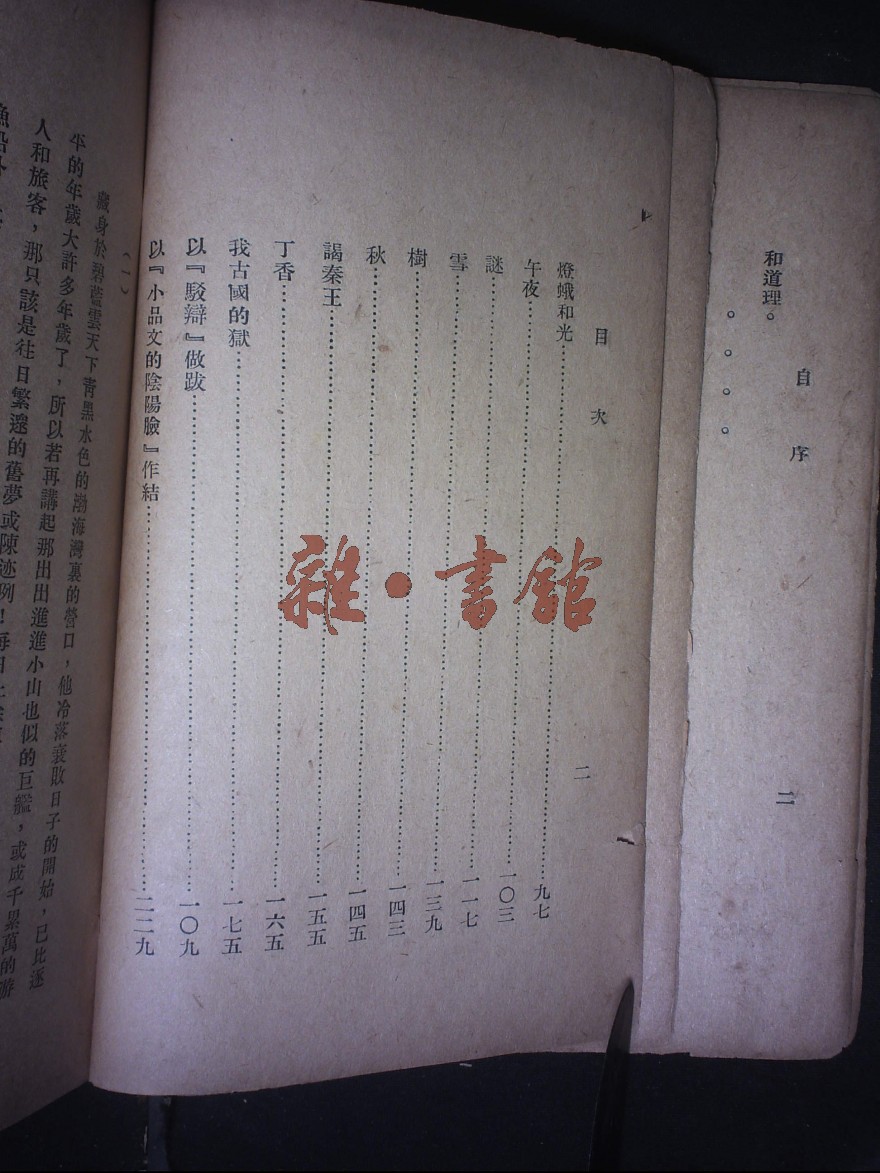 自序
二
和道理。
。。。。
目次
二
燈蛾和光……九七
午夜……一〇三
謎……一一七
雪……一三九
樹……一四三
秋……一四五
謁秦王……一五五
丁香……一六五
我古國的獄……一七五
以『駁辯』做跋……一〇九
以『小品文的陰陽臉』作結……二二九
雜·書館
(一)
藏身於碧藍雲天下青黑水色的渤海灣裏的營口,他冷落衰敗日子的開始,已比逐
年的年歲大許多年歲了,所以若再講起那出出進進小山也似的巨艦,或成千累萬的游
人和旅客,那只該是往日繁邃的舊夢或陳迹咧!每日